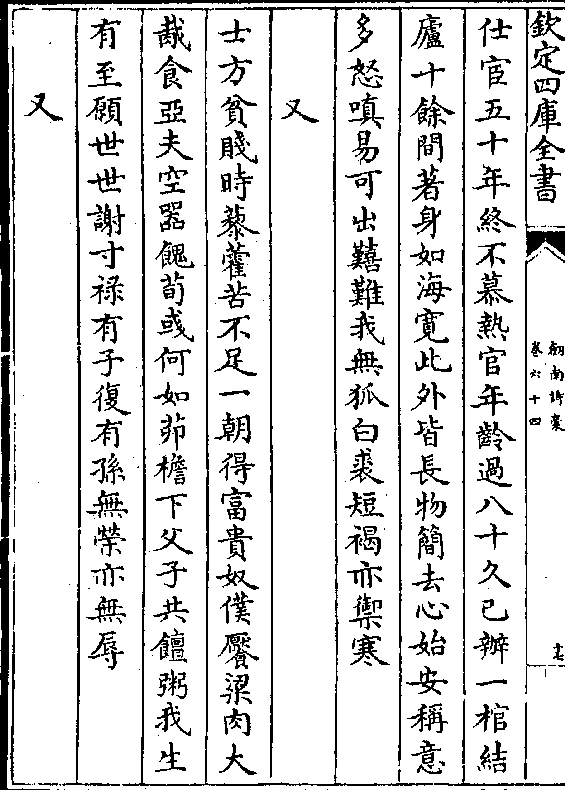 欽定四庫全書
劍南詩稾
卷六十四
仕宦五十年終不慕熱官年齡過八十久已辦一棺結
廬十餘間著身如海寛此外皆長物簡去心始安稱意
多怒嗔易可出囏難我無狐白裘短褐亦禦寒
又
士方貧賤時藜藿苦不足一朝得富貴奴僕饜粱肉大
哉食亞夫空器餽荀彧何如茆檐下父子共饘粥我生
有至願世世謝寸禄有子復有孫無榮亦無辱
又